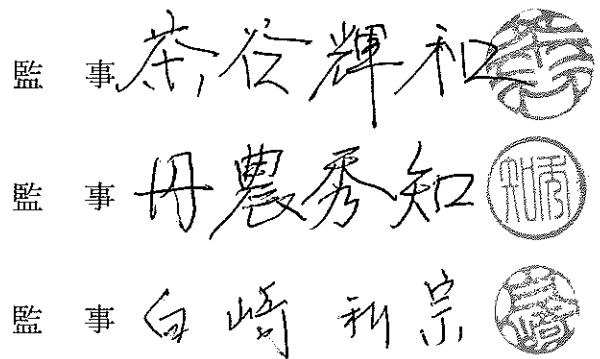 監事 茶谷輝和
監事 丹農秀知
監事 白崎利宗